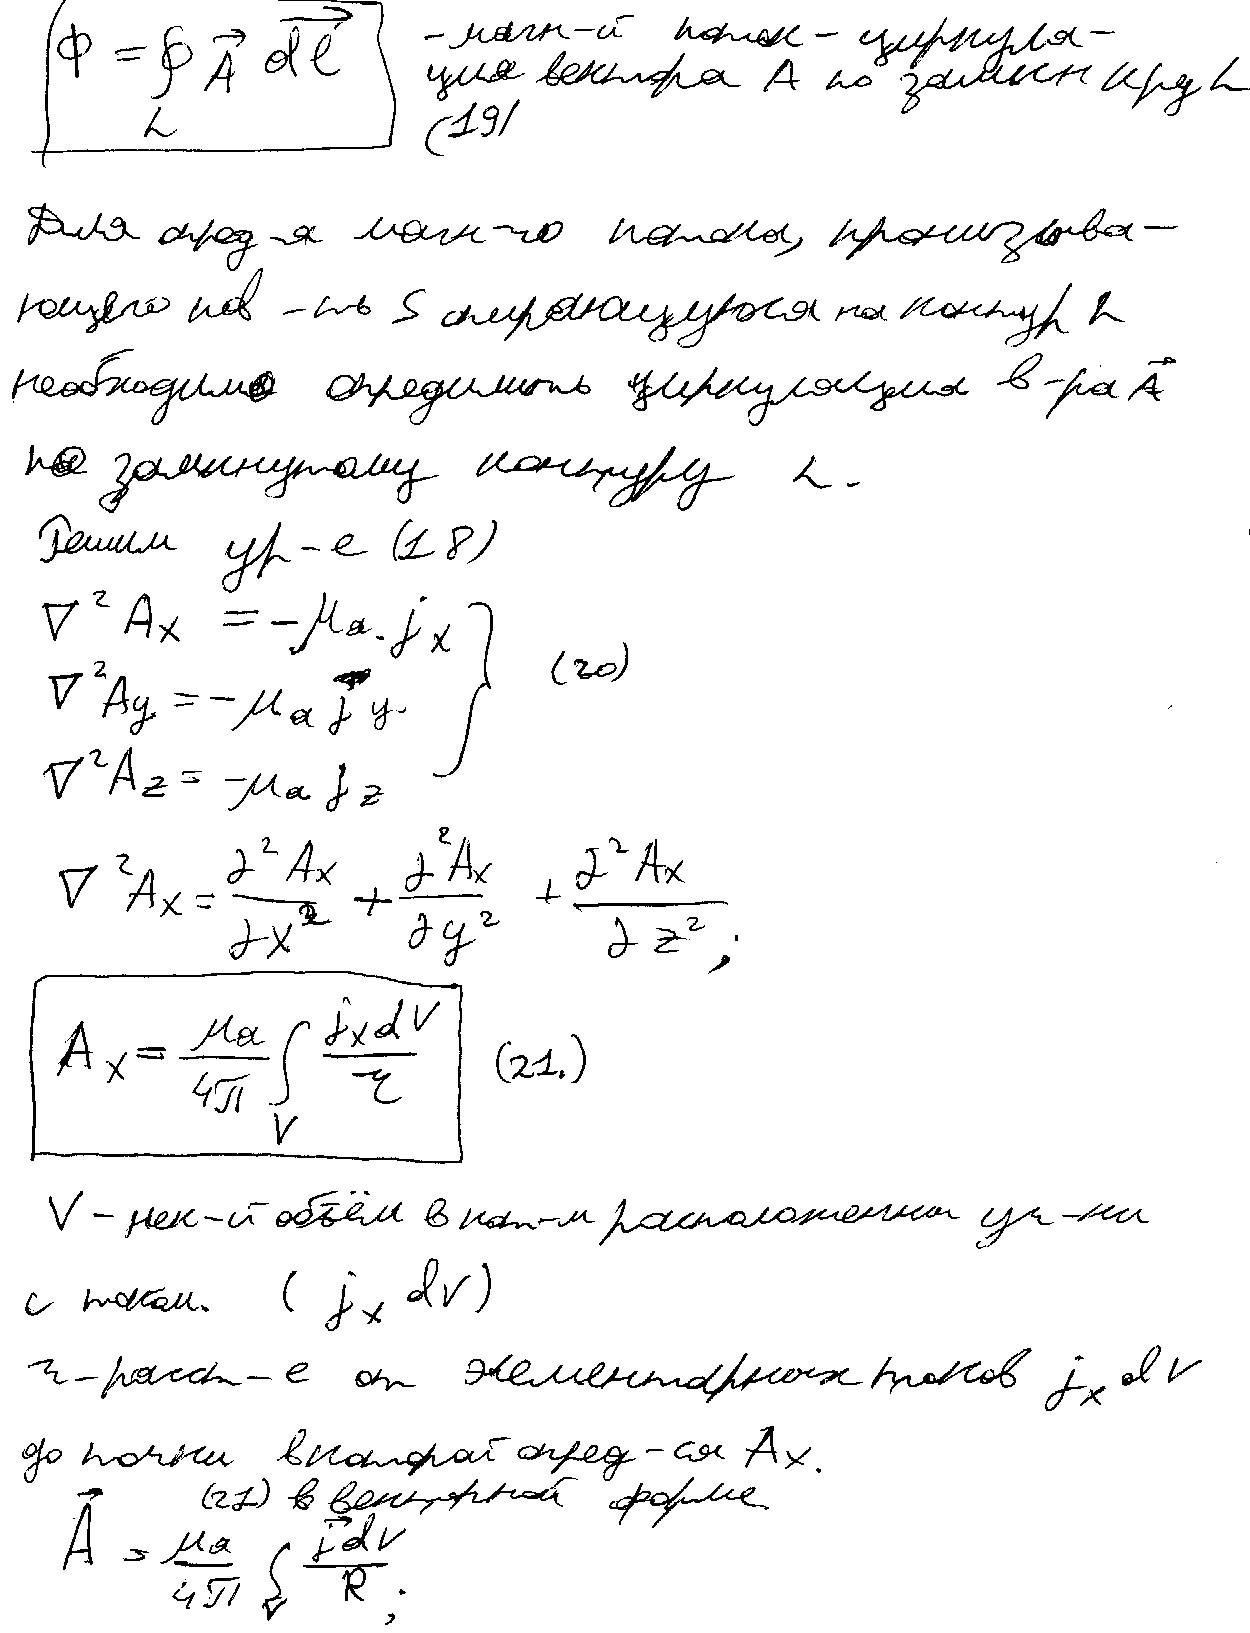 Φ = ∮_L A⃗ dl⃗ - магн-й поток - циркуля-
ция вектора А по замкн крд L
(19)
Для опред-я магн-го потока, пронизыва-
ющего пов-ть S опирающуюся на контур L
необходимо определить циркуляция в-ра A⃗
по замкнутому контуру L.
Решим ур-е (18)
∇²Aₓ = -μₐ·jₓ
∇²A_y = -μₐ j_y. } (20)
∇²A_z = -μₐ j_z
∇²Aₓ = ∂²Aₓ/∂x² + ∂²Aₓ/∂y² + ∂²Aₓ/∂z²;
Aₓ = μₐ/4π ∫_V jₓdV/r (21.)
V - нек-й объём в кот-м расположенны уч-ки
с током. (jₓ dV)
r - расст-е от элементарных токов jₓ dV
до точки в которой опред-ся Aₓ.
(21) в векторной форме
A⃗ = μₐ/4π ∫_V j⃗dV/R;